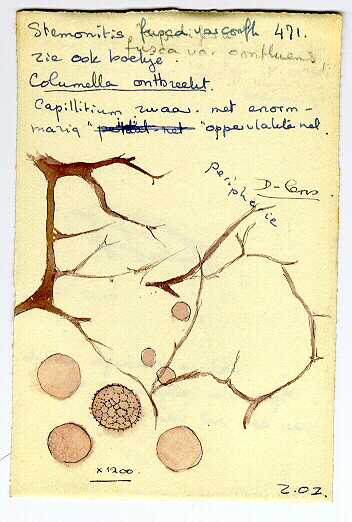 Stemonitis fusca var confl. 471.
fusca var confluens
zie ook boekje.
Columella ontbreekt.
Capillitium zwaar. met enorm-
mazig " " oppervlakte net.
Peripherie
D-Cons.
x 1200.
2.02.